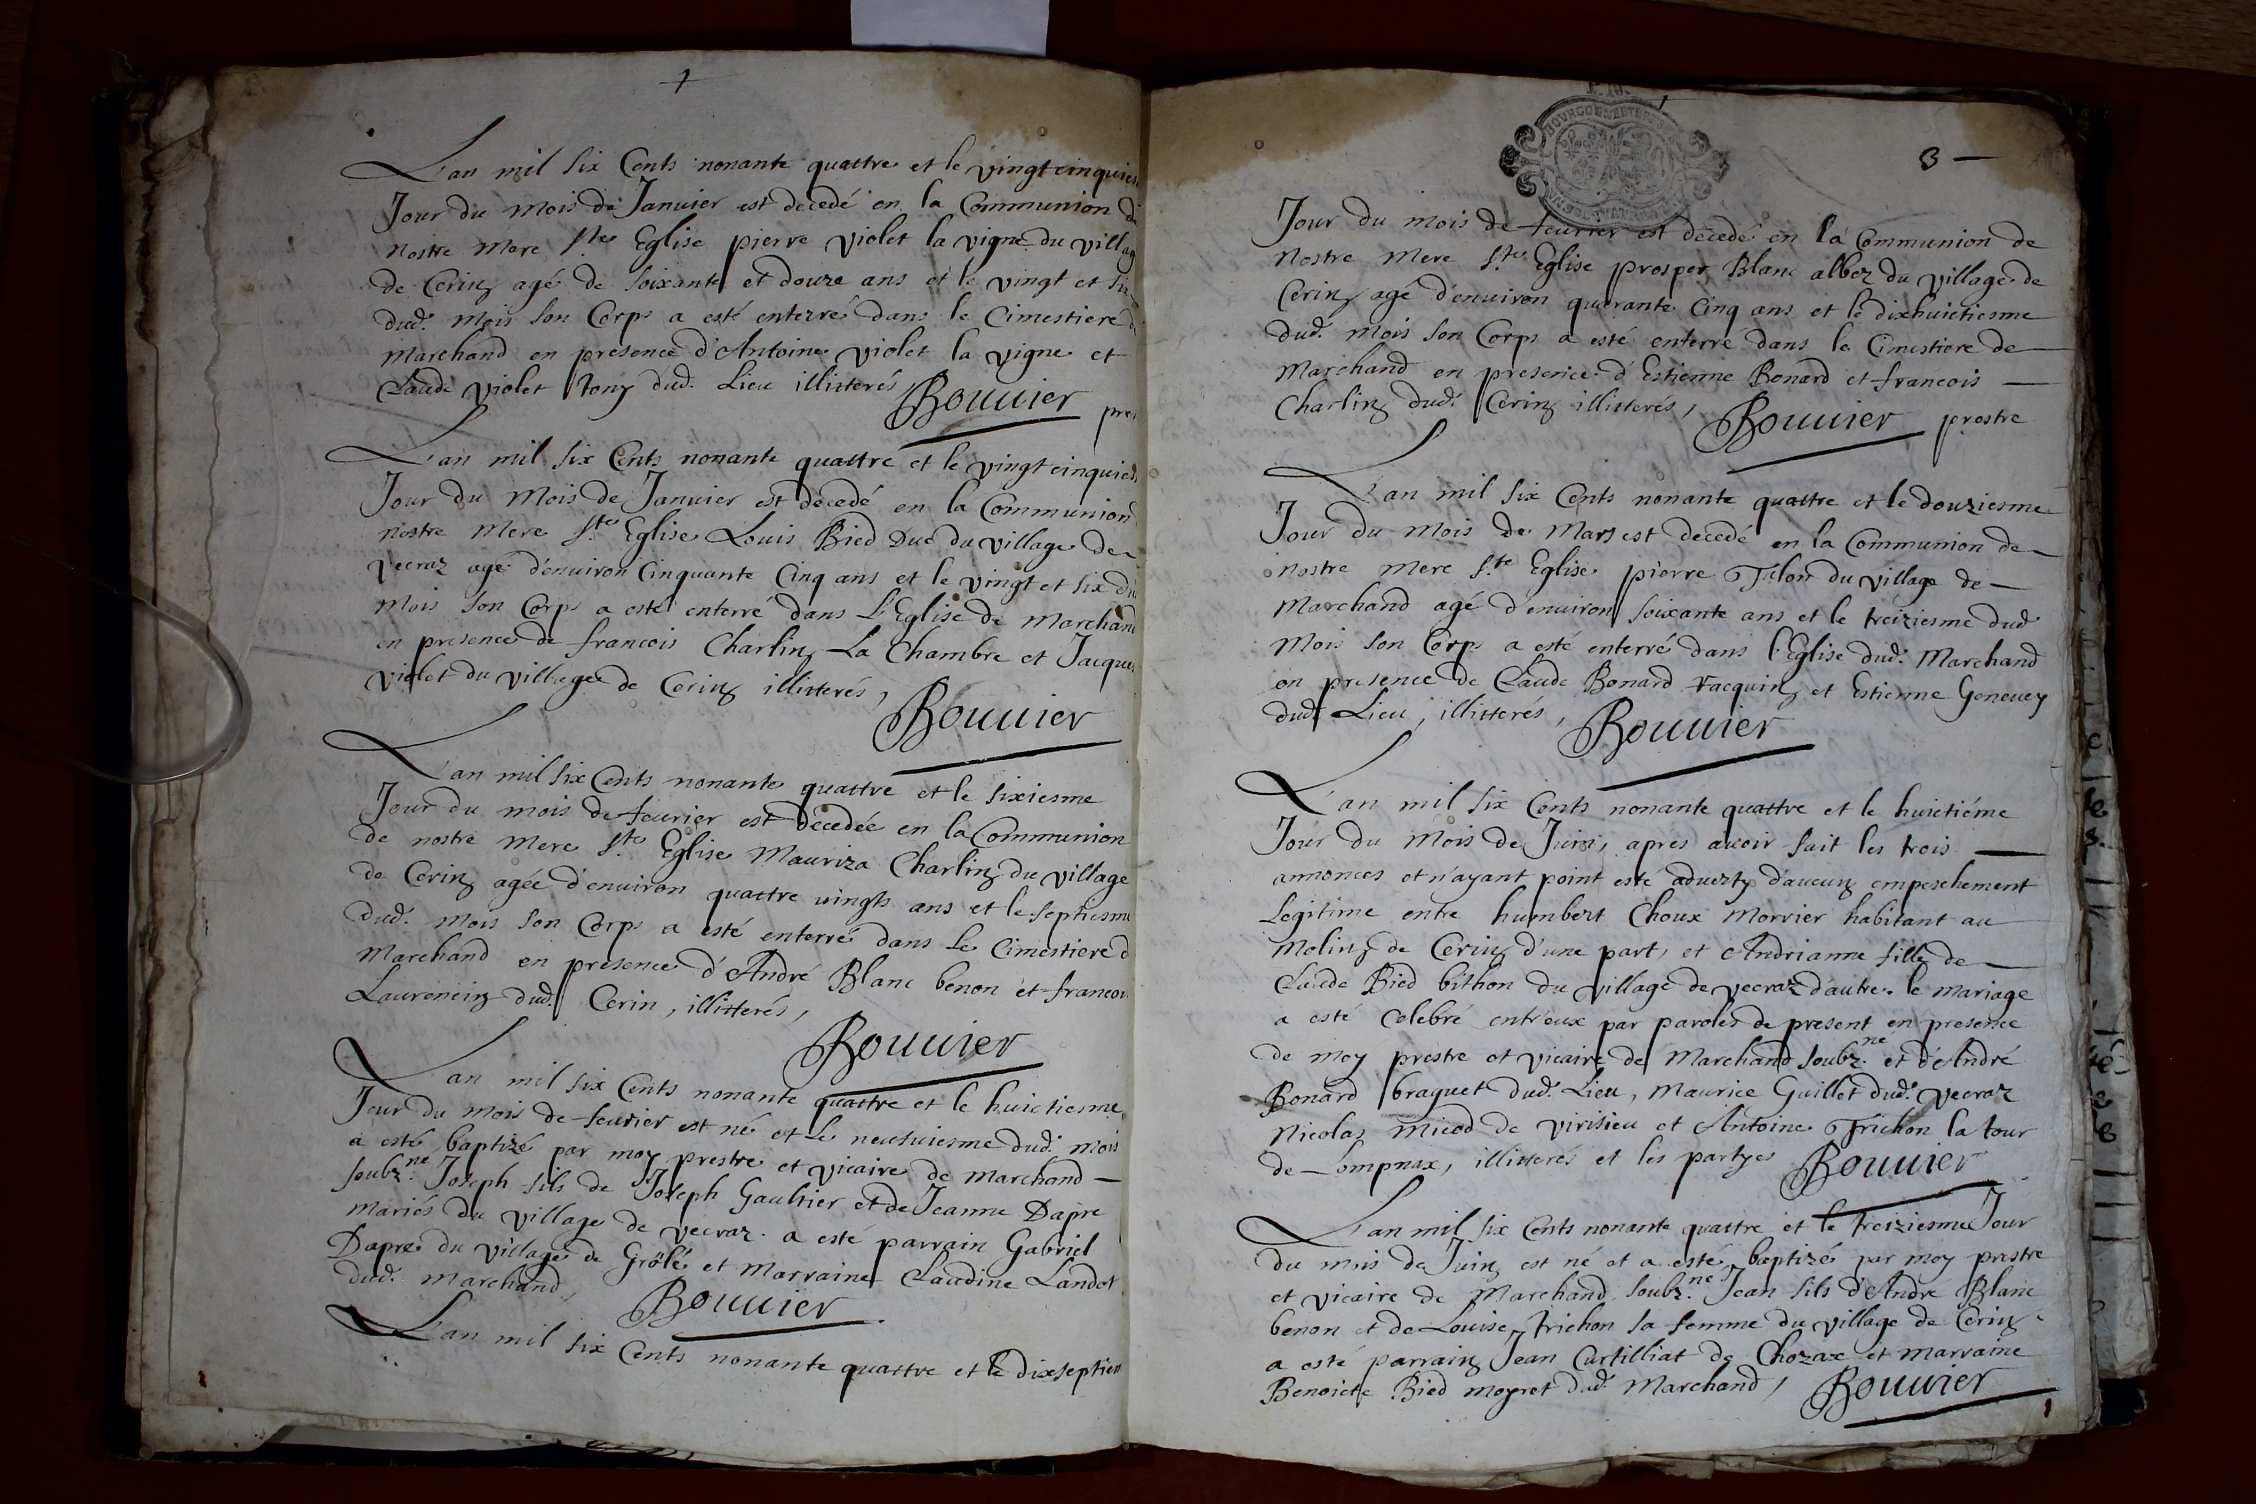 L'an mil six Cents nonante quattre et le vingtcinquies
Jour du mois de Januier est decedé en la Communion de
nostre mere Ste Eglise pierre violet la vigne du villag
de Cerin agé de soixante et douze ans et le vingt et six
dud. mois son Corps a esté enterré dans le Cimestiere d
Marchand en presence d'Antoine violet la vigne et
Claude violet Tony dud. Lieu illitterés
Bouuier pres
L'an mil six Cents nonante quattre et le vingtcinquies
Jour du Mois de Januier est decedé en la Communion
nostre Mere Ste Eglise Louis Bied Duc du village de
vecraz agé d'enuiron Cinquante Cinq ans et le vingt et six du
mois son Corps a esté enterré dans L'Eglise de Marchand
en presence de francois Charlin La Chambre et Jacques
violet du village de Cerin illitterés,
Bouuier
L'an mil six Cents nonante quattre et le sixiesme
Jour du mois de feurier est decedée en la Communion
de nostre Mere Ste Eglise Mauriza Charlin du village
de Cerin agée d'enuiron quattre vingts ans et le septiesme
dud. mois son Corps a esté enterré dans Le Cimestiere d
Marchand en presence d'André Blanc benon et francois
Laurencin dud. Cerin, illitterés,
Bouuier
L'an mil six Cents nonante quattre et le huictiesme
Jour du mois de feurier est né et Le neufuiesme dud. mois
a esté baptizé par moy prestre et vicaire de Marchand
soubz.ne Joseph fils de Joseph Gaultier et de Jeanne Dapre
mariés du village de vecraz. a esté parrain Gabriel
Dapre du village de Grölé et Marraine Claudine Landot
dud. Marchand,
Bouuier
L'an mil six Cents nonante quattre et le dixseptiem
3
Jour du mois de feurier est decedé en la Communion de
Nostre Mere Ste Eglise prosper Blanc albez du village de
Cerin agé d'enuiron quarante Cinq ans et le dixhuictiesme
dud. Mois son Corps a esté enterré dans le Cimestiere de
Marchand en presence d'Estienne Bonard et francois
Charlin dud. Cerin illitterés,
Bouuier prestre
L'an mil six Cents nonante quattre et le douziesme
Jour du Mois de Mars est decedé en la Communion de
nostre mere Ste Eglise pierre Talon du village de
Marchand agé d'enuiron soixante ans et le treiziesme dud
Mois son Corps a esté enterré dans l'Eglise dud. Marchand
en presence de Claude Bonard Jacquin et Estienne Geneuey
dud Lieu, illitterés,
Bouuier
L'an mil six Cents nonante quattre et le huictiéme
Jour du Mois de Juin, apres auoir fait les trois
annonces et n'ayant point esté aduerty d'aucun empeschement
Legitime entre humbert Choux Morvier habitant au
Molin de Cerin d'une part, et Andrianne fille de
Claude Bied bithon du village de vecraz d'autre. le mariage
a esté Celebré entr'eux par paroles de present en presence
de moy prestre et vicaire de Marchand soubz.ne et d'André
Bonard braquet dud. Lieu, Maurice Guillet dud. vecraz
Nicolas Micod de virisieu et Antoine Trichon la tour
de Lompnax, illitterés et les partyes
Bouuier
L'an mil six Cents nonante quattre et le treiziesme Jour
du mois de Juin est né et a esté baptizé par moy prestre
et vicaire de Marchand soubz.ne Jean fils d'André Blanc
benon et de Louise trichon sa femme du village de Cerin
a esté parrain Jean Curtilliat de Chozax et marraine
Benoicte Bied moyret dud. Marchand,
Bouuier